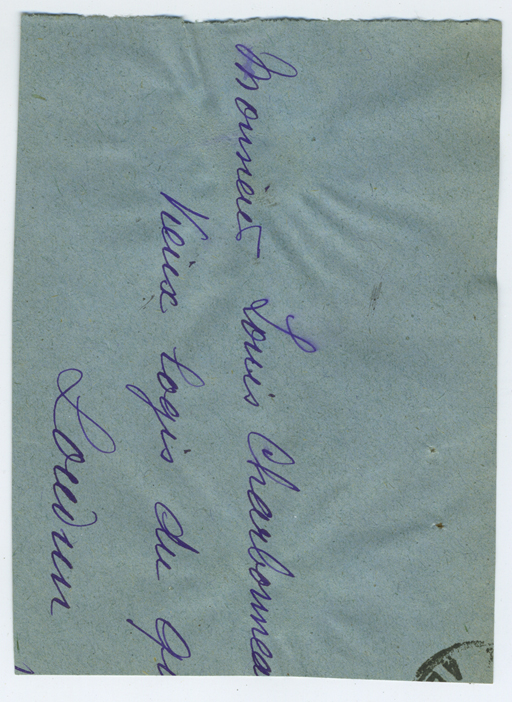 Monsieur Louis Charbonnea
Vieux Logis du Qu
Loudun